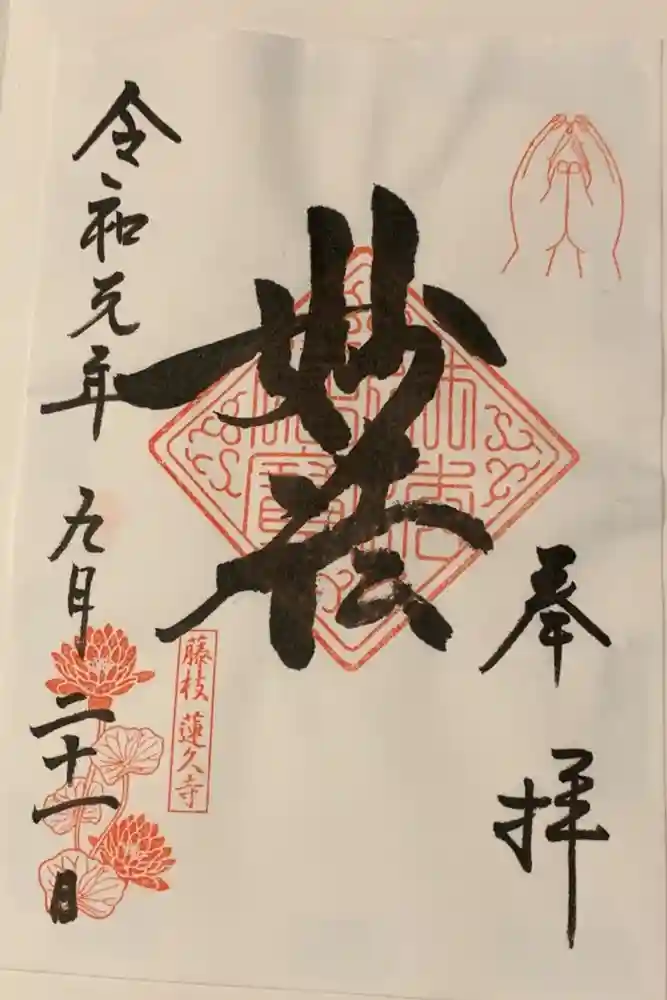 奉拝
妙法
藤枝 蓮久寺
令和元年 九月二十一日